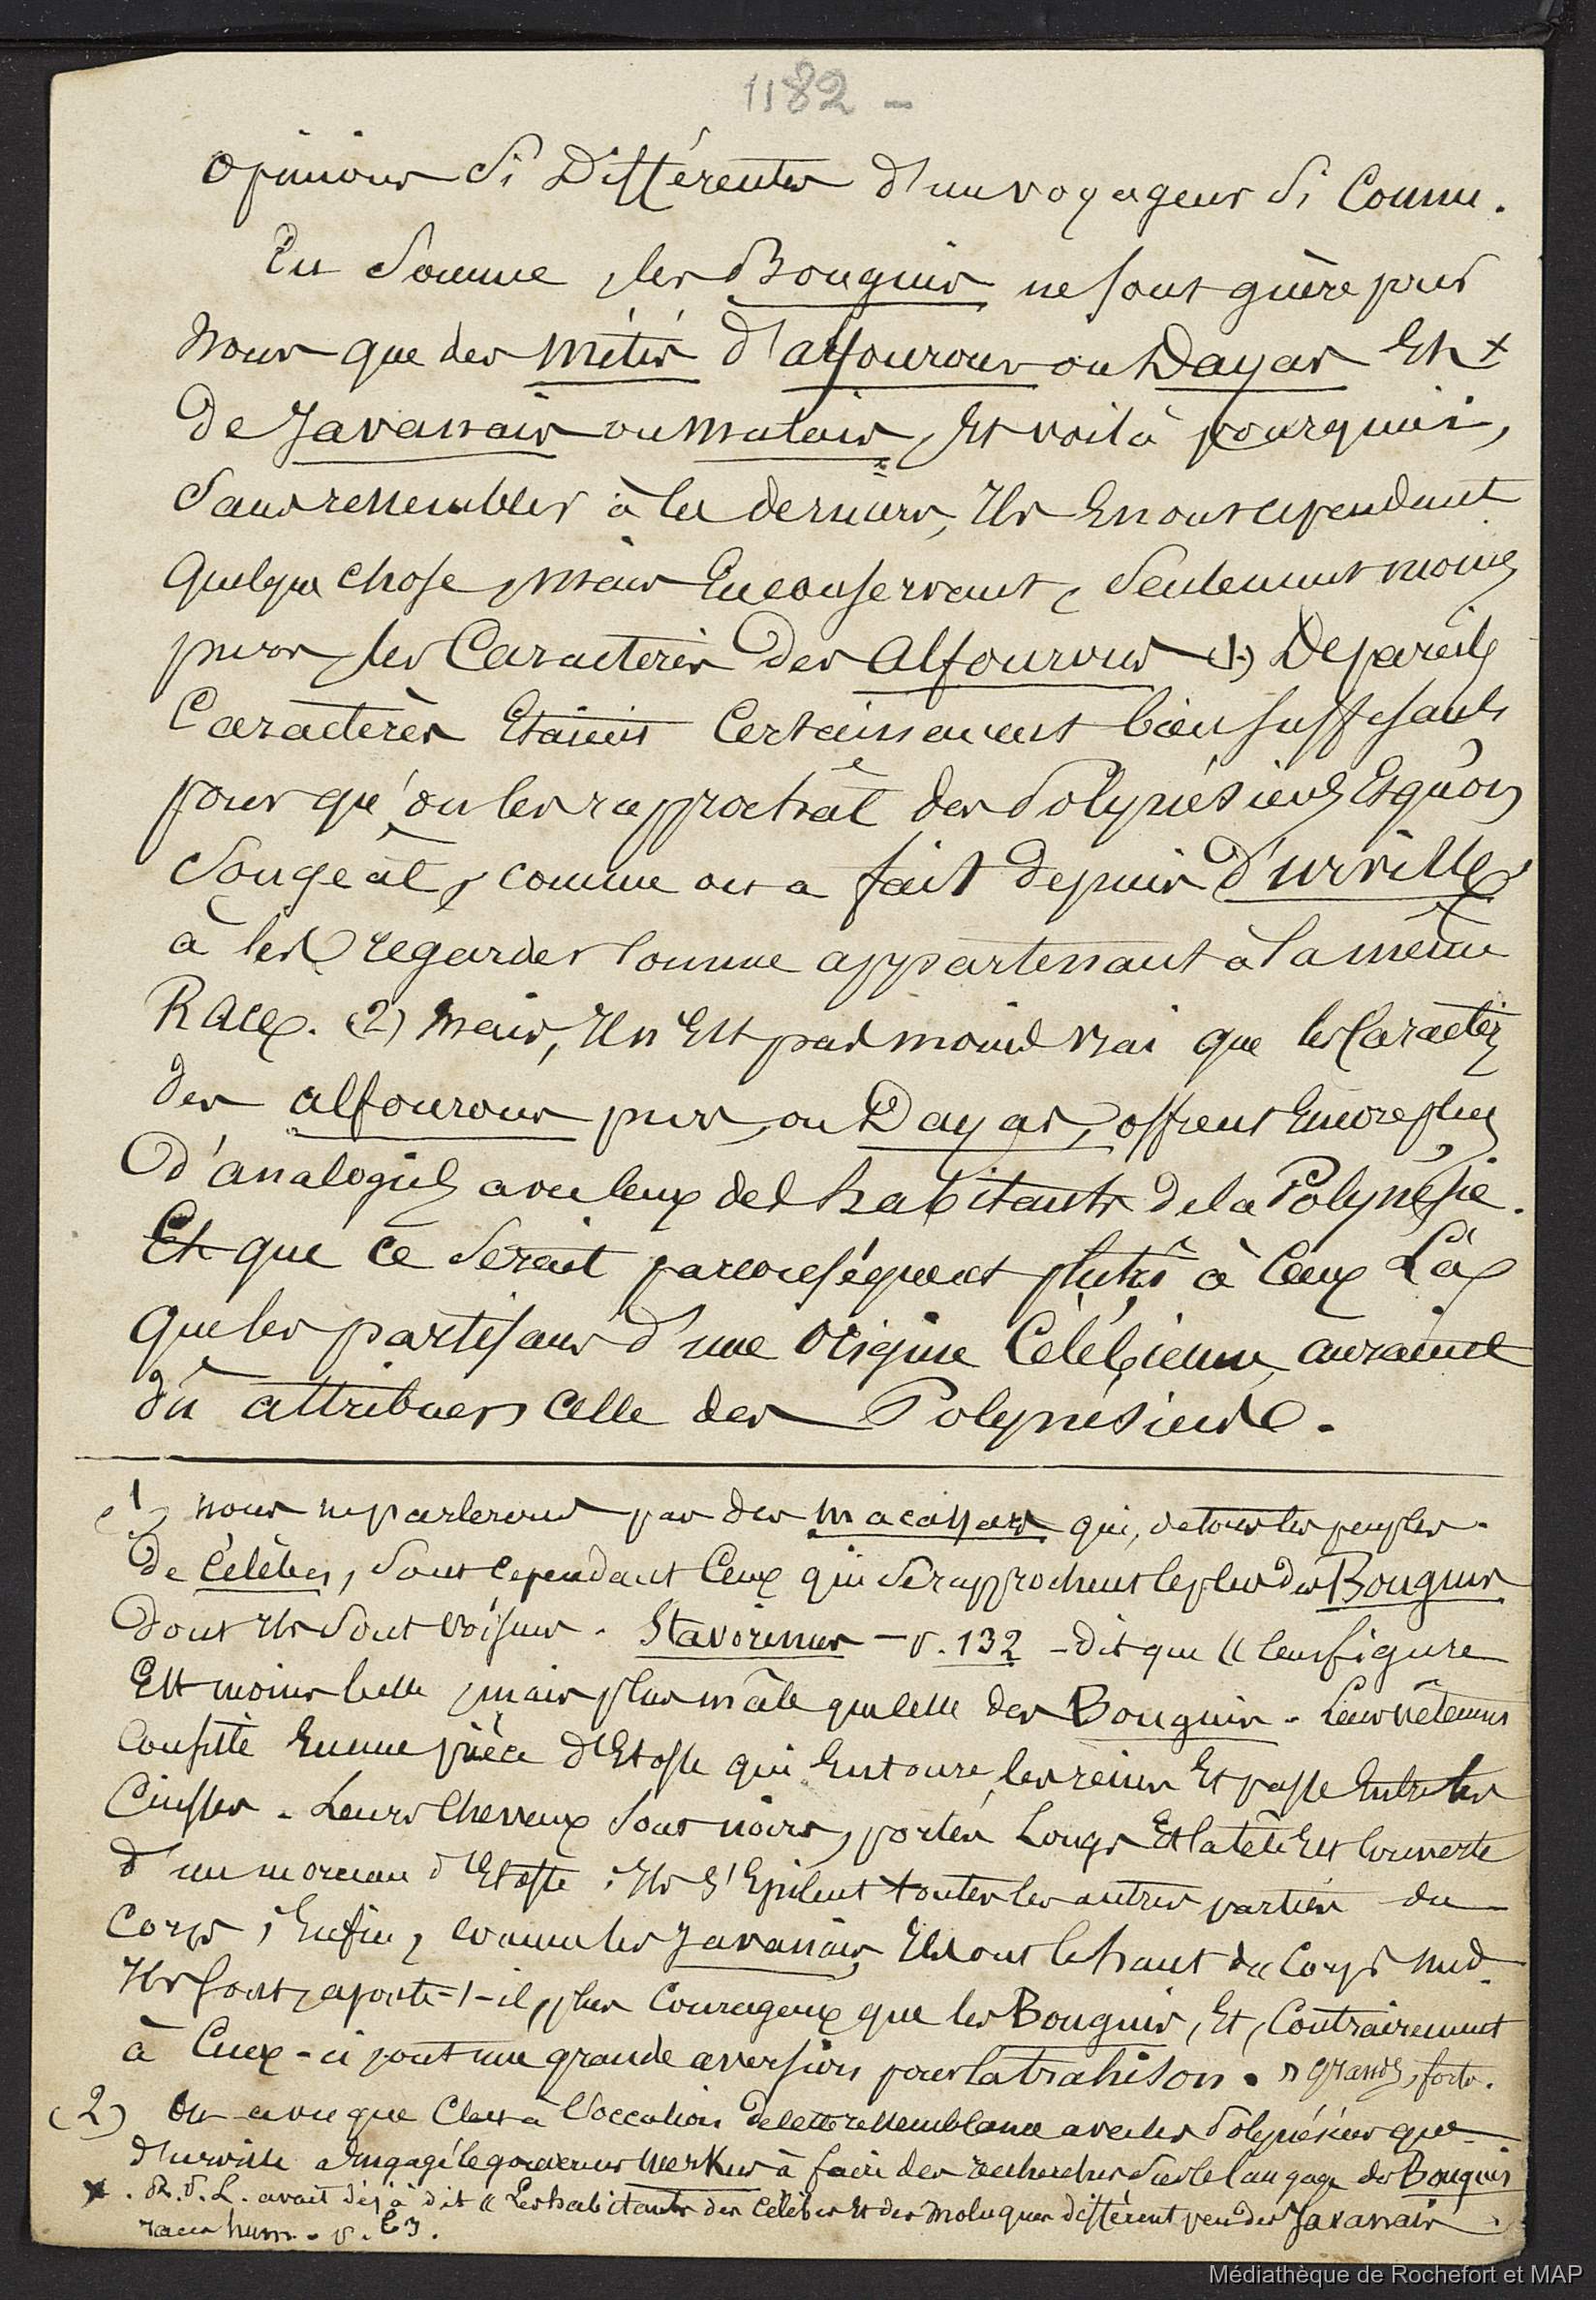 1182 -
opinions si Différentes d'un voyageur si Connu.
En Somme, les Bouguis ne sont guère pour
nous que des métis d'alfourous ou Dayas Et x
de Javanais ou malais, Et voilà pourquoi,
sans ressembler à les derniers, Ils En ont cependant
quelque chose, mais En conservant, seulement moins
purs, les Caractères des alfourous (1) De pareils
Caractères Etaient Certainement bien suffisants
pour qu'on les rapprochât des Polynésiens Et qu'on
songeât, comme on a fait depuis d'urville,
à les regarder Comme appartenant à la même
Race. (2) mais, Il n'Est pas moins vrai que les Caractères
des alfourous purs, ou Dayas, offrent Encore plus
d'analogies avec ceux des habitants de la Polynésie.
Et que ce serait par conséquent plutôt à Ceux Là
que les partisans d'une origine Célébienne, auraient
dû attribuer celle des Polynésiens.
(1) nous ne parlerons pas des macassars qui, de tous les peuples
de Célèbes, sont cependant Ceux qui se rapprochent le plus des Bouguis
dont Ils sont voisins. Stavorinus - p. 132 - dit que « leur figure
Est moins belle, mais plus mâle que celle des Bouguis. Leur vêtement
consiste En une pièce d'Etoffe qui Entoure les reins Et passe Entre les
Cuisses. Leurs Cheveux sont noirs, portés Longs Et la tête Est Couverte
d'un morceau d'Etoffe ; Ils s'Epilent toutes les autres parties du
Corps ; Enfin, comme les Javanais, Ils ont le haut du Corps nud.
Ils sont, ajoute-t-il, plus Courageux que les Bouguis, Et, Contrairement
à Ceux-ci, ont une grande aversion pour la trahison. » grands, forts.
(2) On a vu que C'est à l'occasion de cette ressemblance avec les Polynésiens que
d'urville a Engagé le gouverneur Merkus à faire des recherches sur le langage des Bouguis
x. R. P. L. avait déjà dit « Les habitants des Célèbes Et des Moluques différent peu des Javanais
races hum. - p.
Médiathèque de Rochefort et MAP